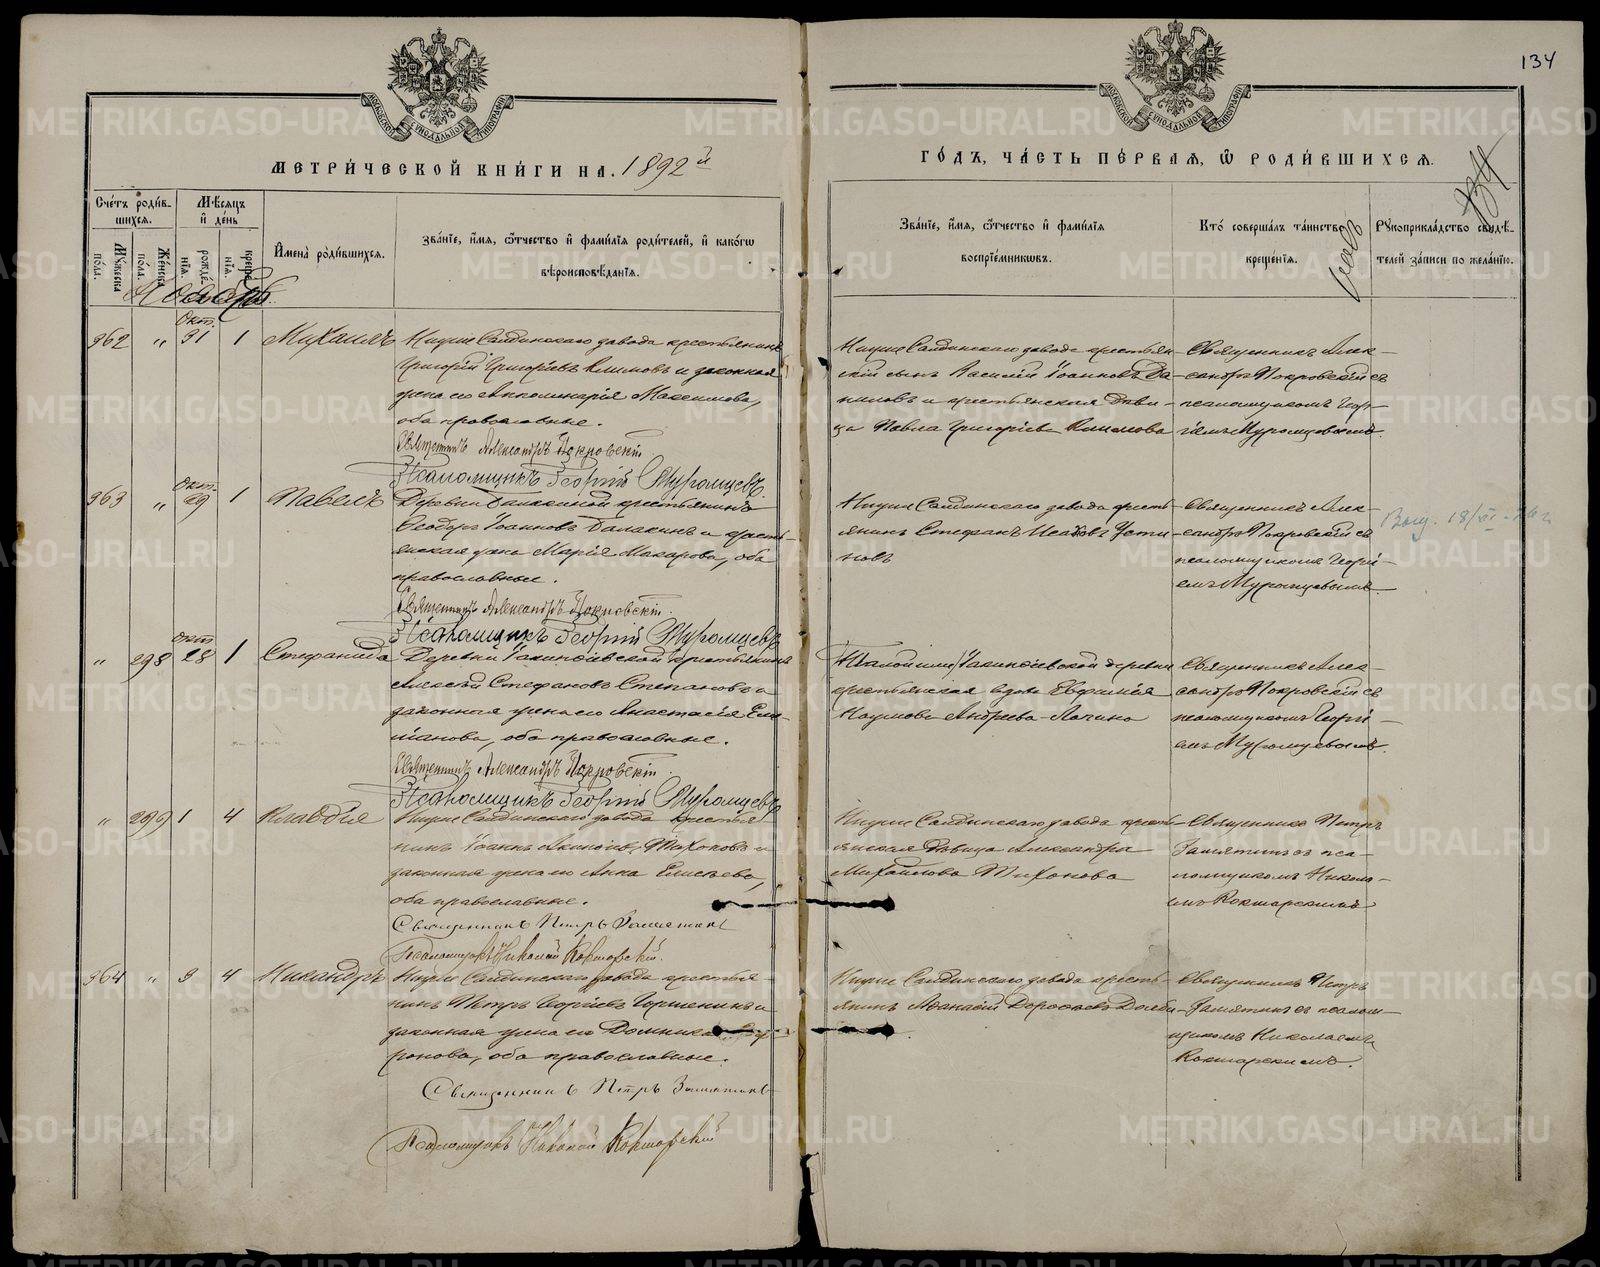 134
МЕТРИ́ЧЕСКОЙ КНИ́ГИ НА 1892 й
ГО́ДЪ, ЧА́СТЬ ПЕ́РВАЯ, Ѿ РОДИ́ВШИХСѦ.
Сче́тъ роди́в-
шихся.
Мѣ́сяцъ
и҆ де́нь
И҆мена̀ роди́вшихся.
Зва́нїе, и҆́мя, ѻ҆́тчество и҆ фами́лїя роди́телей, и҆ како́гѡ
вѣроисповѣ́данїя.
Зва́нїе, и҆́мя, ѻ҆́тчество и҆ фами́лїя
воспрїе́мниковъ.
Кто̀ соверша́лъ та́инство
креще́нїя.
Рꙋкоприкла́дство свидѣ́-
телей за́писи по жела́нїю.
Ноябрь
362 " Окт. 31 1 Михаилъ
Нижне Салдинскаго завода крестьянинъ
Григорій Григоріевъ Климовъ и законная
жена его Апполинарія Максимова,
оба православные.
Священникъ Александръ Покровскій
Псаломщикъ Георгій Муромцевъ.
Нижне Салдинскаго завода крестьян-
скій сынъ Василій Іоанновъ Да-
ниловъ и крестьянская дѣви-
ца Павла Григоріева Климова
Священникъ Алек-
сандръ Покровскій съ
псаломщикомъ Геор-
гіемъ Муромцевымъ.
363 " Окт. 29 1 Павелъ
Деревни Балакиной крестьянинъ
Ѳеодоръ Іоанновъ Балакинъ и
жена Марія Макарова, оба
православные.
Священникъ Александръ Покровскій.
Псаломщикъ Георгій Муромцевъ
Нижне Салдинскаго завода кресть-
янинъ Стефанъ Усти-
новъ
Священникъ Алек-
сандръ Покровскій съ
псаломщикомъ Георгі-
емъ Муромцевымъ.
" 298 Окт 28 1 Стефанида
Деревни крестьянинъ
Алексѣй Стефановъ Степановъ и
законная жена его Анастасія
оба православные.
Священникъ Александръ Покровскій.
Псаломщикъ Георгій Муромцевъ
деревни
крестьянская вдова Евфимія
Наумова Андреева
Священникъ Алек-
сандръ Покровскій съ
псаломщикомъ Георгі-
емъ Муромцевымъ.
" 299 1 4 Клавдія
Нижне Салдинскаго завода крестья-
нинъ Іоаннъ Тихоновъ и
законная жена его Анна Елисѣева,
оба православные.
Священникъ Петръ Замятинъ
Псаломщикъ Николай Кокшарскій.
Нижне Салдинскаго завода кресть-
янская дѣвица Александра
Михайлова Тихонова
Священникъ Петръ
Замятинъ съ пса-
ломщикомъ Никола-
емъ Кокшарскимъ
364 " 3 4 Никандръ
Нижне Салдинскаго завода крестья-
нинъ Петръ Георгіевъ и
законная жена его Домника
оба православные.
Священникъ Петръ Замятинъ
Псаломщикъ Николай Кокшарскій
Нижне Салдинскаго завода кресть-
янинъ Аѳанасій
Священникъ Петръ
Замятинъ съ псалом-
щикомъ Николаемъ
Кокшарскимъ.
METRIKI.GASO-URAL.RU